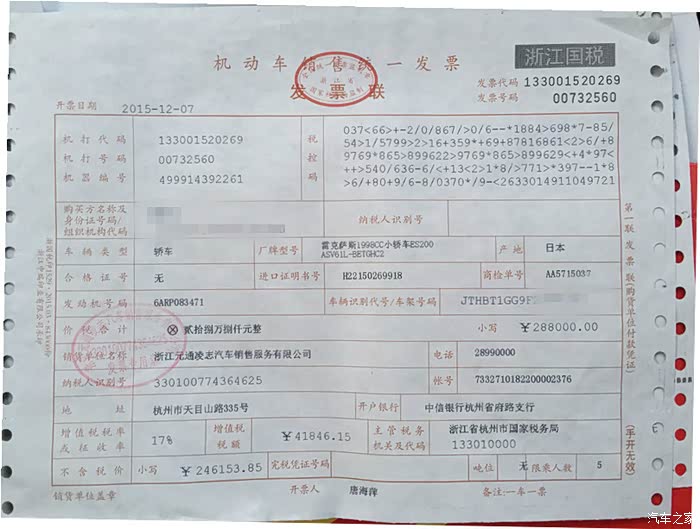 机动车销售统一发票
浙江国税
发票联
发票代码 133001520269
发票号码 00732560
开票日期 2015-12-07
机打代码 133001520269
机打号码 00732560
机器编号 499914392261
税控码
037<66>+-2/0/867/>0/6--*1884>698*7-85/
54>1/5799>2>16+359*+69+87816861<2>6/+8
9769*865>899622>9769*865>899629<+4*97<
++>540/636-6/<+13<2>1*8/>771>*397--1*8
>6/+80+9/6-8/0370*/9-<2633014911049721
购买方名称及
身份证号码/
组织机构代码
纳税人识别号
车辆类型 轿车 厂牌型号 雷克萨斯1998CC小轿车ES200 ASV61L-BETGHC2 产地 日本
合格证号 无 进口证明书号 H22150269918 商检单号 AA5715037
发动机号码 6ARP083471 车辆识别代号/车架号码 JTHBT1GG9F
价税合计 ⊗贰拾捌万捌仟元整 小写 ￥288000.00
销货单位名称 浙江元通凌志汽车销售服务有限公司 电话 28990000
纳税人识别号 330100774364625 帐号 7332710182200002376
地址 杭州市天目山路335号 开户银行 中信银行杭州省府路支行
增值税税率或征收率 17% 增值税税额 ￥41846.15 主管税务机关及代码 浙江省杭州市国家税务局 133010000
不含税价 小写 ￥246153.85 完税凭证号码 吨位 无 限乘人数 5
销货单位盖章 开票人 唐海萍 备注:一车一票
第一联 发票联(购货单位付款凭证)
(手开无效)
汽车之家